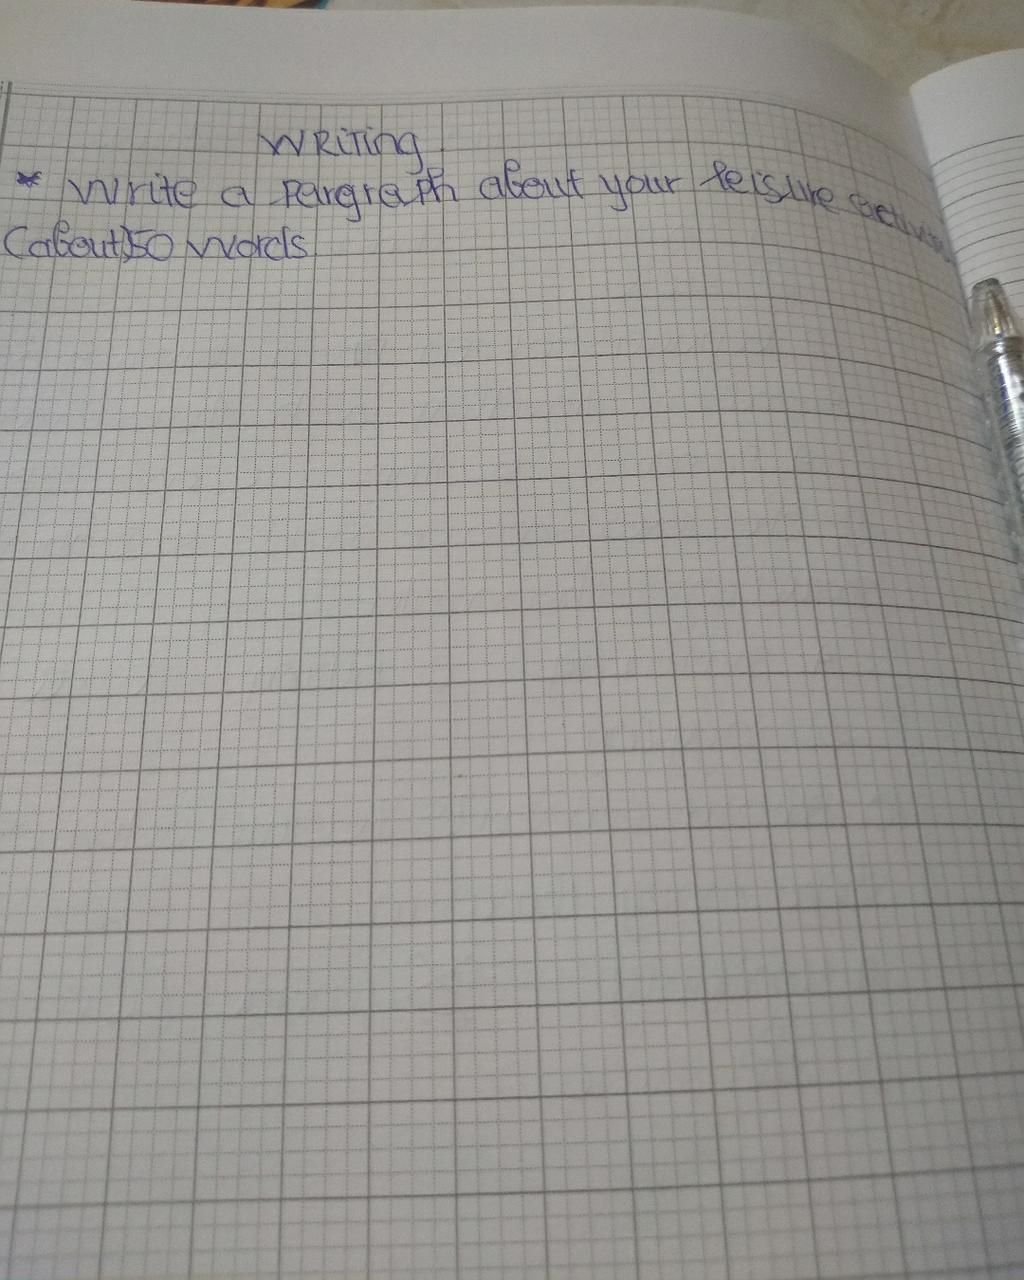 WRiTing
* Write a pargraph about your leisure
(about)50 words